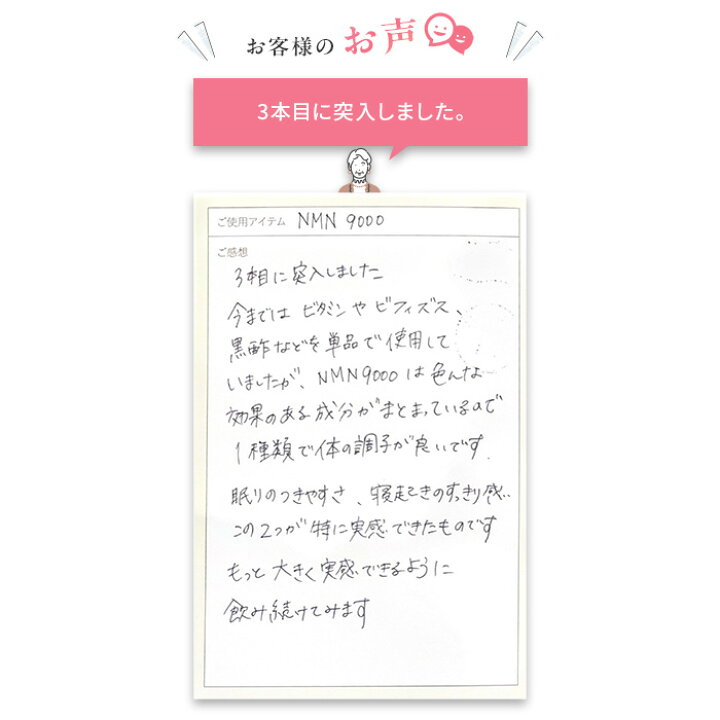 お客様のお声
3本目に突入しました。
ご使用アイテム NMN 9000
ご感想
3本目に突入しました
今までは ビタミンや ビフィズス、
黒酢などを単品で使用して
いましたが、NMN9000は色んな
効果のある成分がまとまっているので
1種類で体の調子が良いです.
眠りのつきやすさ、寝起きのすっきり感..
この2つが特に実感できたものです
もっと大きく実感できるように
飲み続けてみます